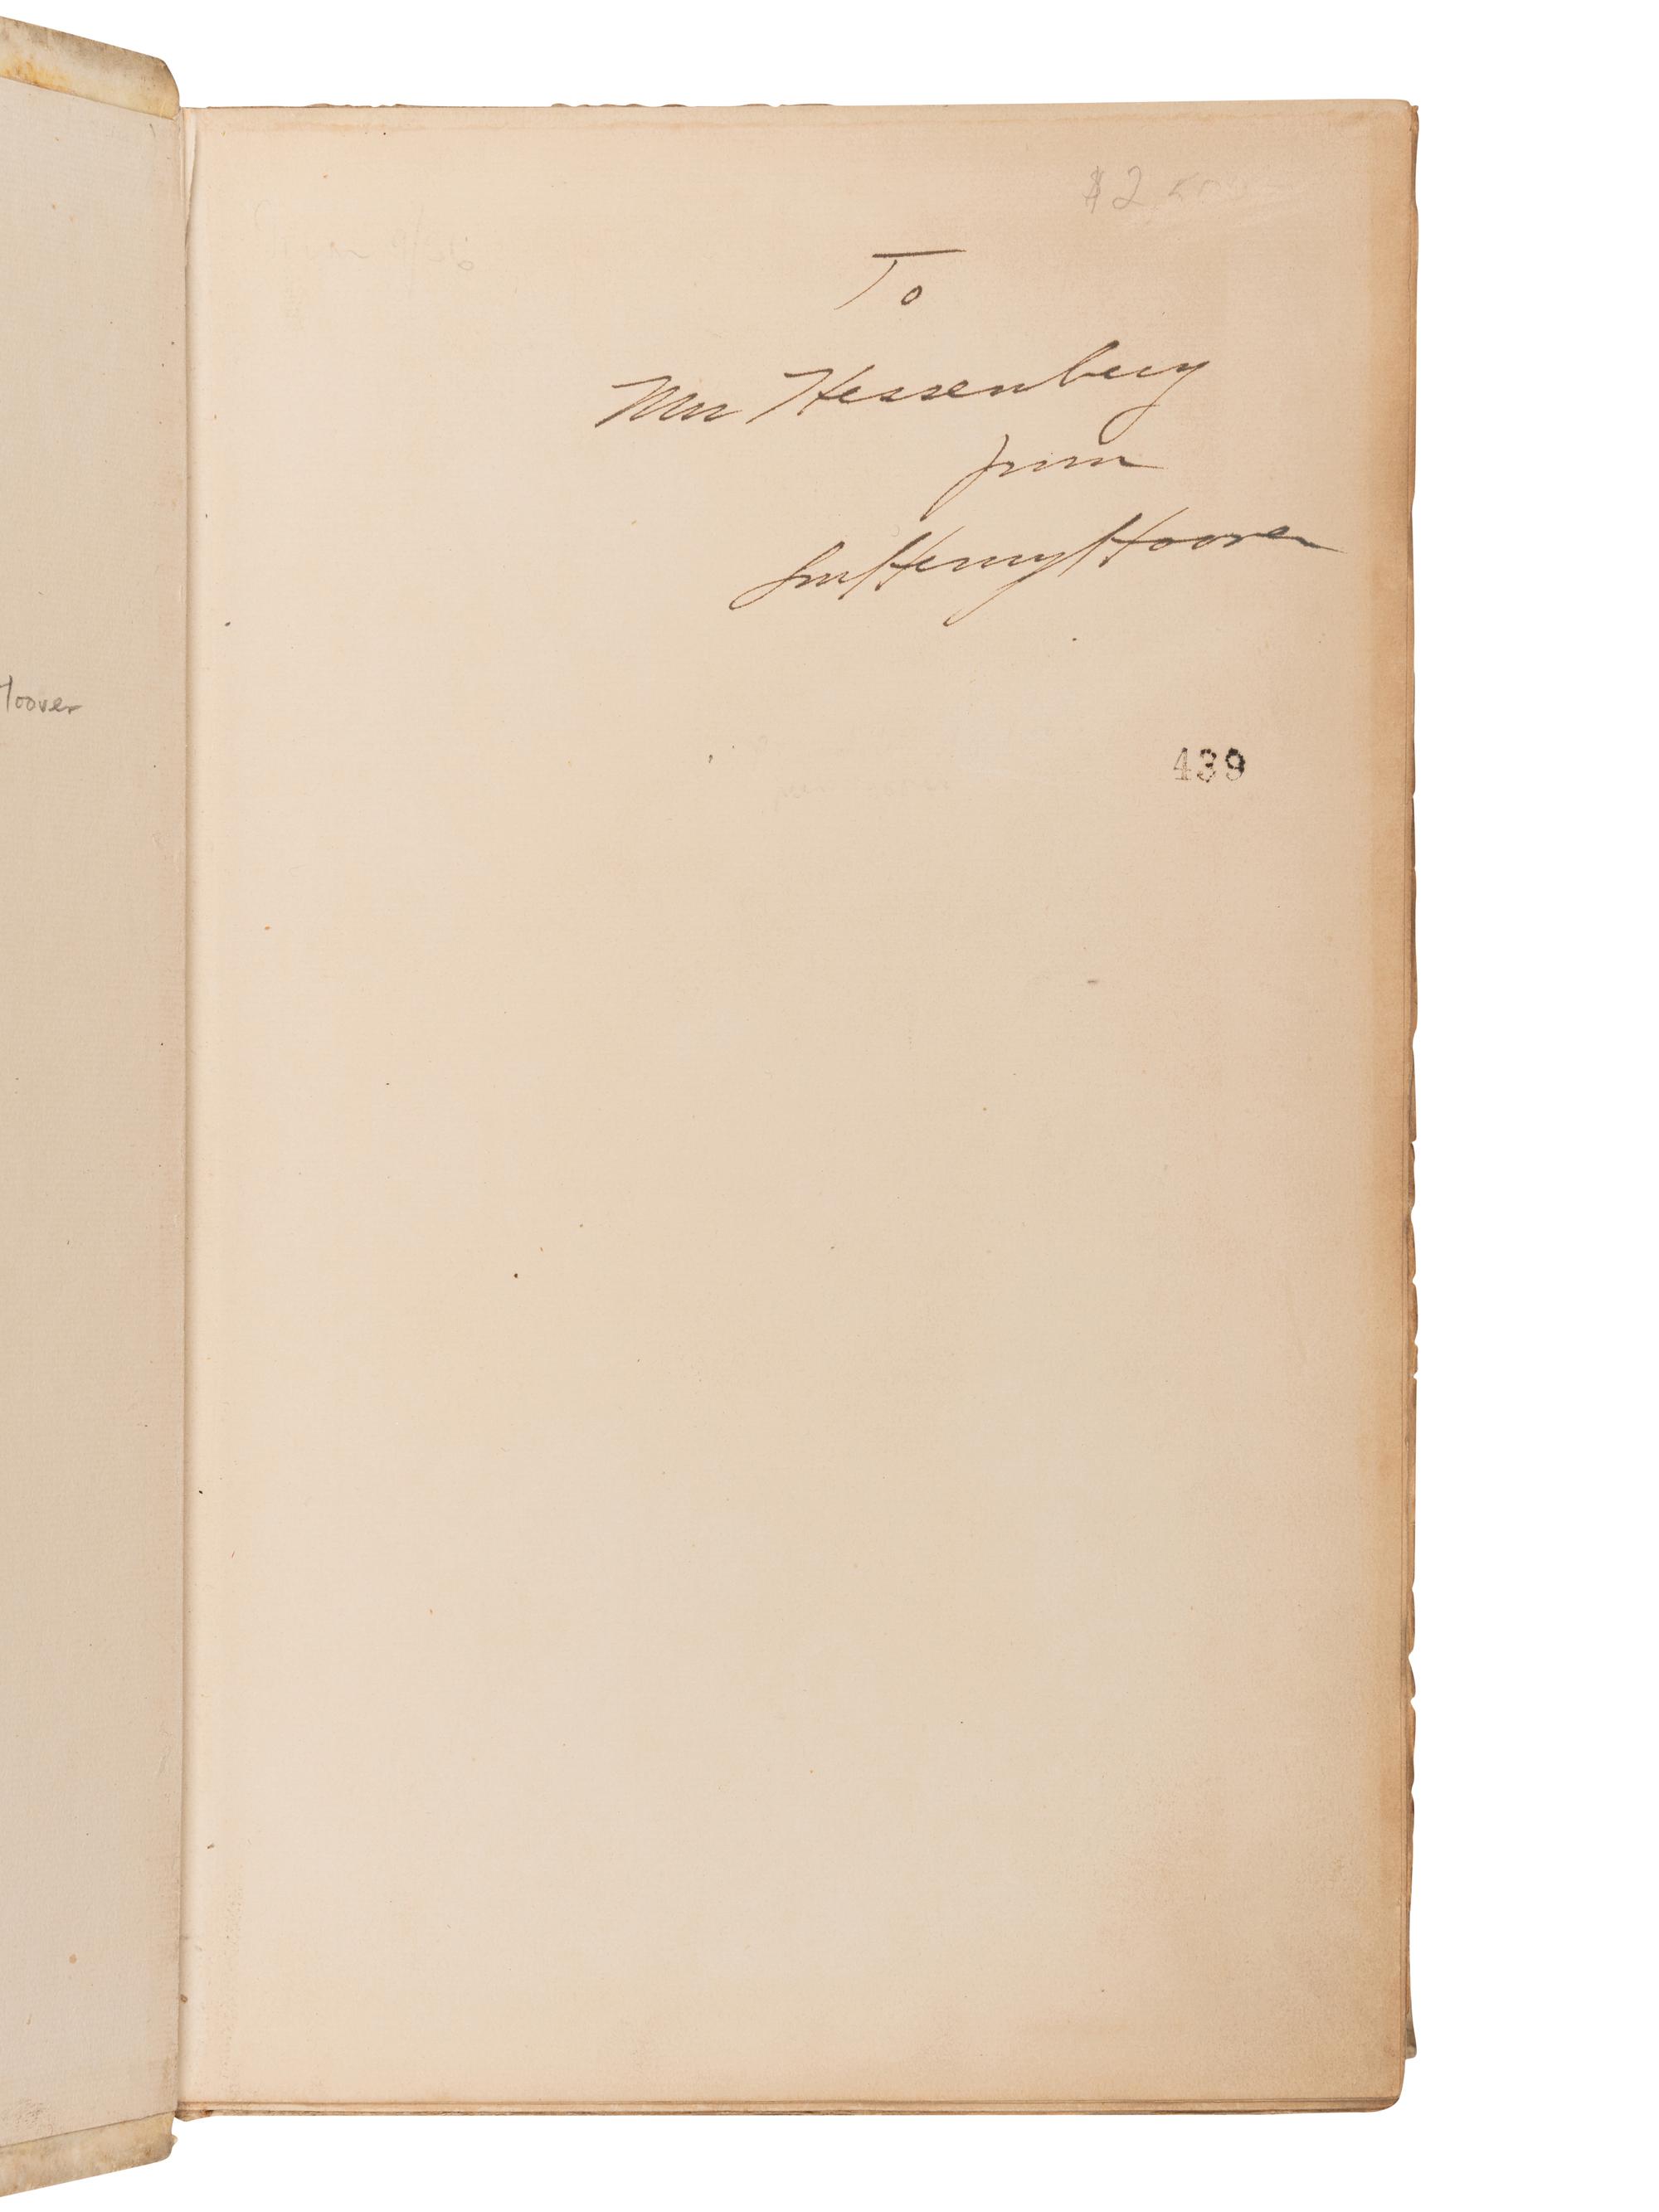 Hoover
$2,500
To
Mrs Hessenberg
from
Lou Henry Hoover
439